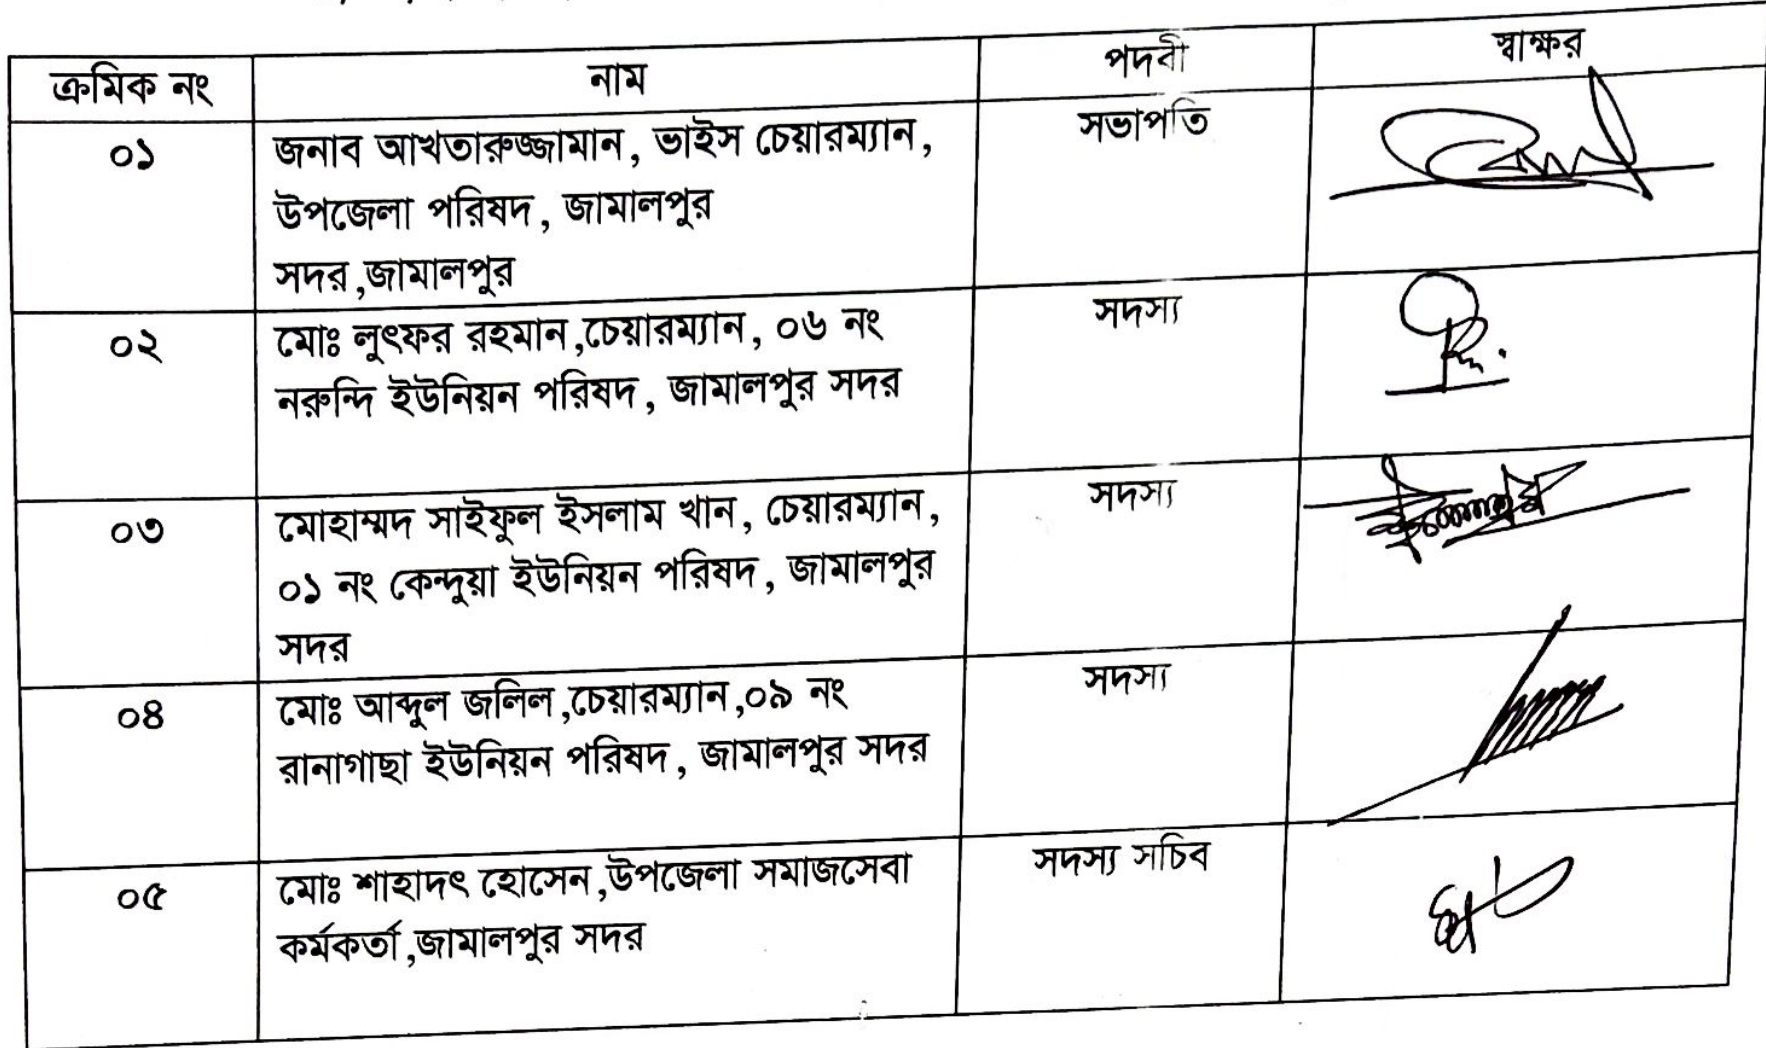 ক্রমিক নং নাম পদবী স্বাক্ষর
০১ জনাব আখতারুজ্জামান, ভাইস চেয়ারম্যান, সভাপতি
উপজেলা পরিষদ, জামালপুর
সদর,জামালপুর
০২ মোঃ লুৎফর রহমান,চেয়ারম্যান, ০৬ নং সদস্য
নরুন্দি ইউনিয়ন পরিষদ, জামালপুর সদর
০৩ মোহাম্মদ সাইফুল ইসলাম খান, চেয়ারম্যান, সদস্য
০১ নং কেন্দুয়া ইউনিয়ন পরিষদ, জামালপুর
সদর
০৪ মোঃ আব্দুল জলিল,চেয়ারম্যান,০৯ নং সদস্য
রানাগাছা ইউনিয়ন পরিষদ, জামালপুর সদর
০৫ মোঃ শাহাদৎ হোসেন,উপজেলা সমাজসেবা সদস্য সচিব
কর্মকর্তা,জামালপুর সদর